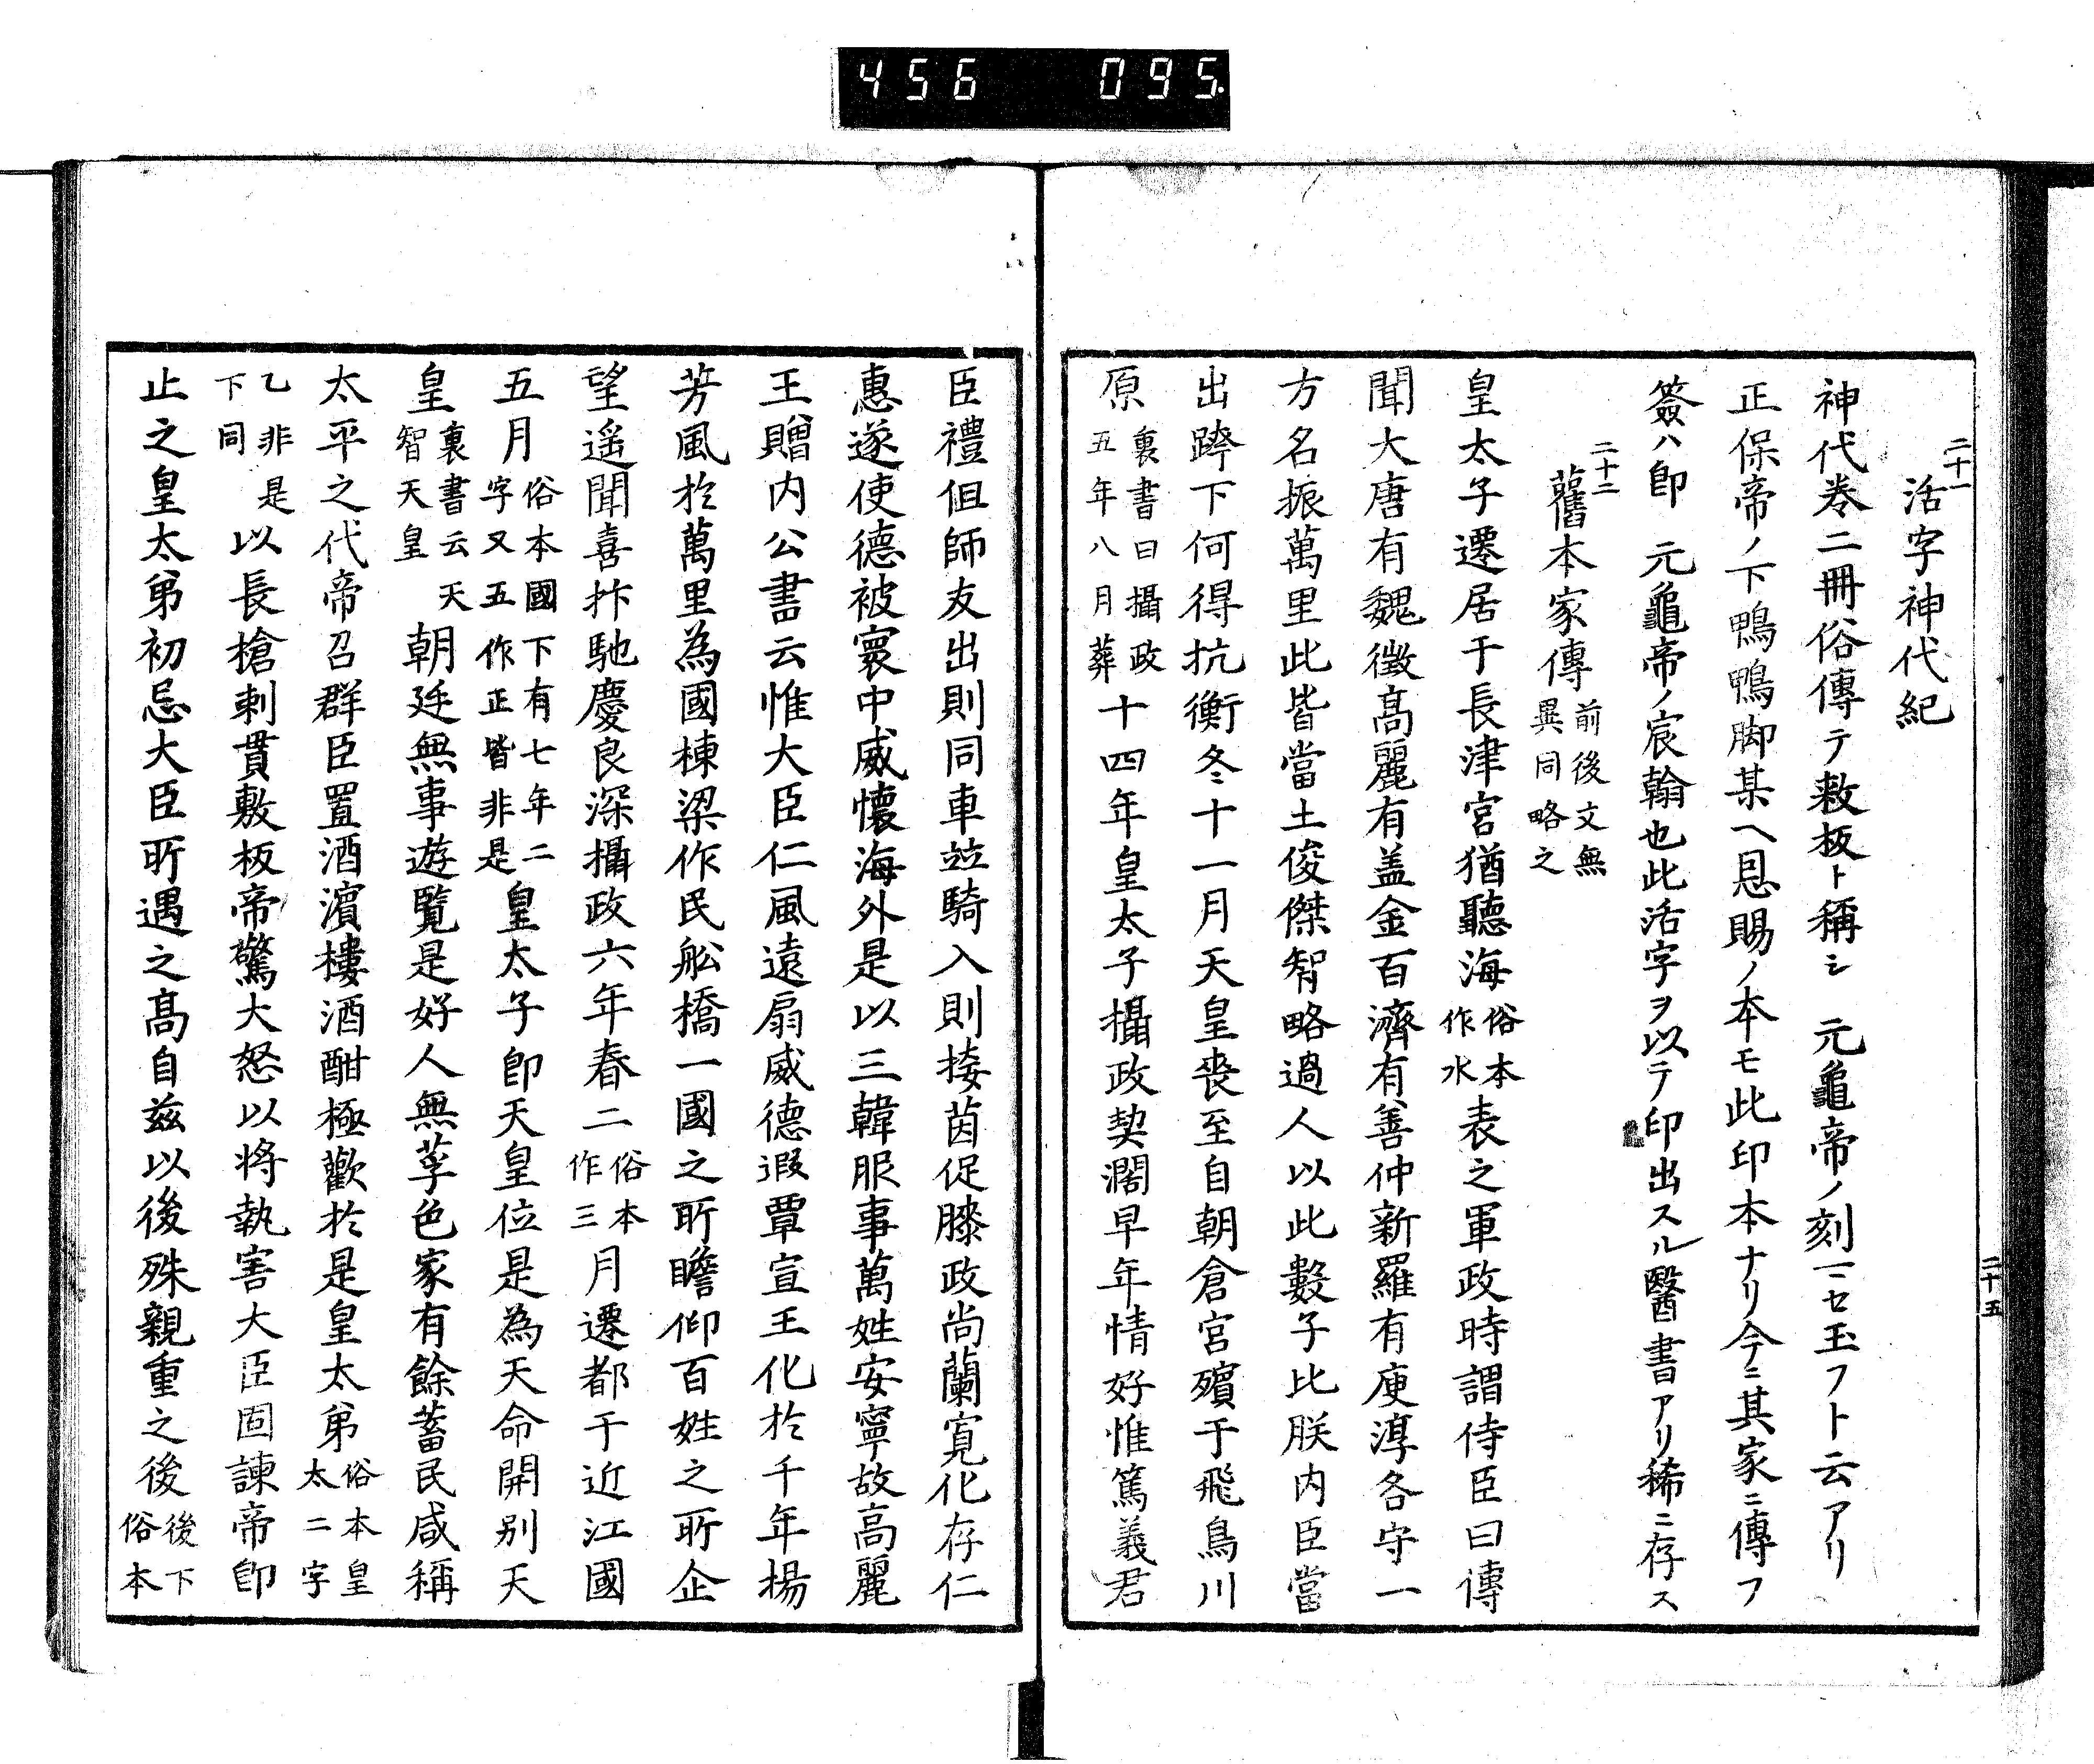 456 095.
二十一
活字神代紀
神代巻二冊俗傳テ敕板ト稱シ 元龜帝ノ刻ニセ玉フト云アリ
正保帝ノ下鴨鴨脚某ヘ恩賜ノ本モ此印本ナリ今ニ其家ニ傳フ
簽ハ卽 元龜帝ノ宸翰也此活字ヲ以テ印出スル醫書アリ稀ニ存ス
二十二
舊本家傳 前後文無異同略之
皇太子遷居于長津宮猶聽海 俗本作水 表之軍政時謂侍臣曰傳
聞大唐有魏徵高麗有盖金百濟有善仲新羅有庾淳各守一
方名振萬里此皆當土俊傑智略過人以此數子比朕内臣當
出跨下何得抗衡冬十一月天皇喪至自朝倉宮殯于飛鳥川
原 裏書曰攝政五年八月葬 十四年皇太子攝政契濶早年情好惟篤義君
二十五
臣禮但師友出則同車竝騎入則接茵促膝政尚蘭寛化存仁
惠遂使德被寰中威懷海外是以三韓服事萬姓安寧故高麗
王贈内公書云惟大臣仁風遠扇威德遐覃宣王化於千年揚
芳風於萬里為國棟梁作民舩橋一國之所瞻仰百姓之所企
望遥聞喜抃馳慶良深攝政六年春二 俗本作三 月遷都于近江國
五月 俗本國下有七年二字又五作正皆非是 皇太子卽天皇位是為天命開别天
皇 裏書云天智天皇 朝廷無事遊覽是好人無莩色家有餘蓄民咸稱
太平之代帝召群臣置酒濱樓酒酣極歡於是皇太弟 俗本皇太二字
乙非是下同 以長槍刺貫敷板帝驚大怒以将執害大臣固諫帝卽
止之皇太弟初忌大臣所遇之高自茲以後殊親重之後 後下俗本